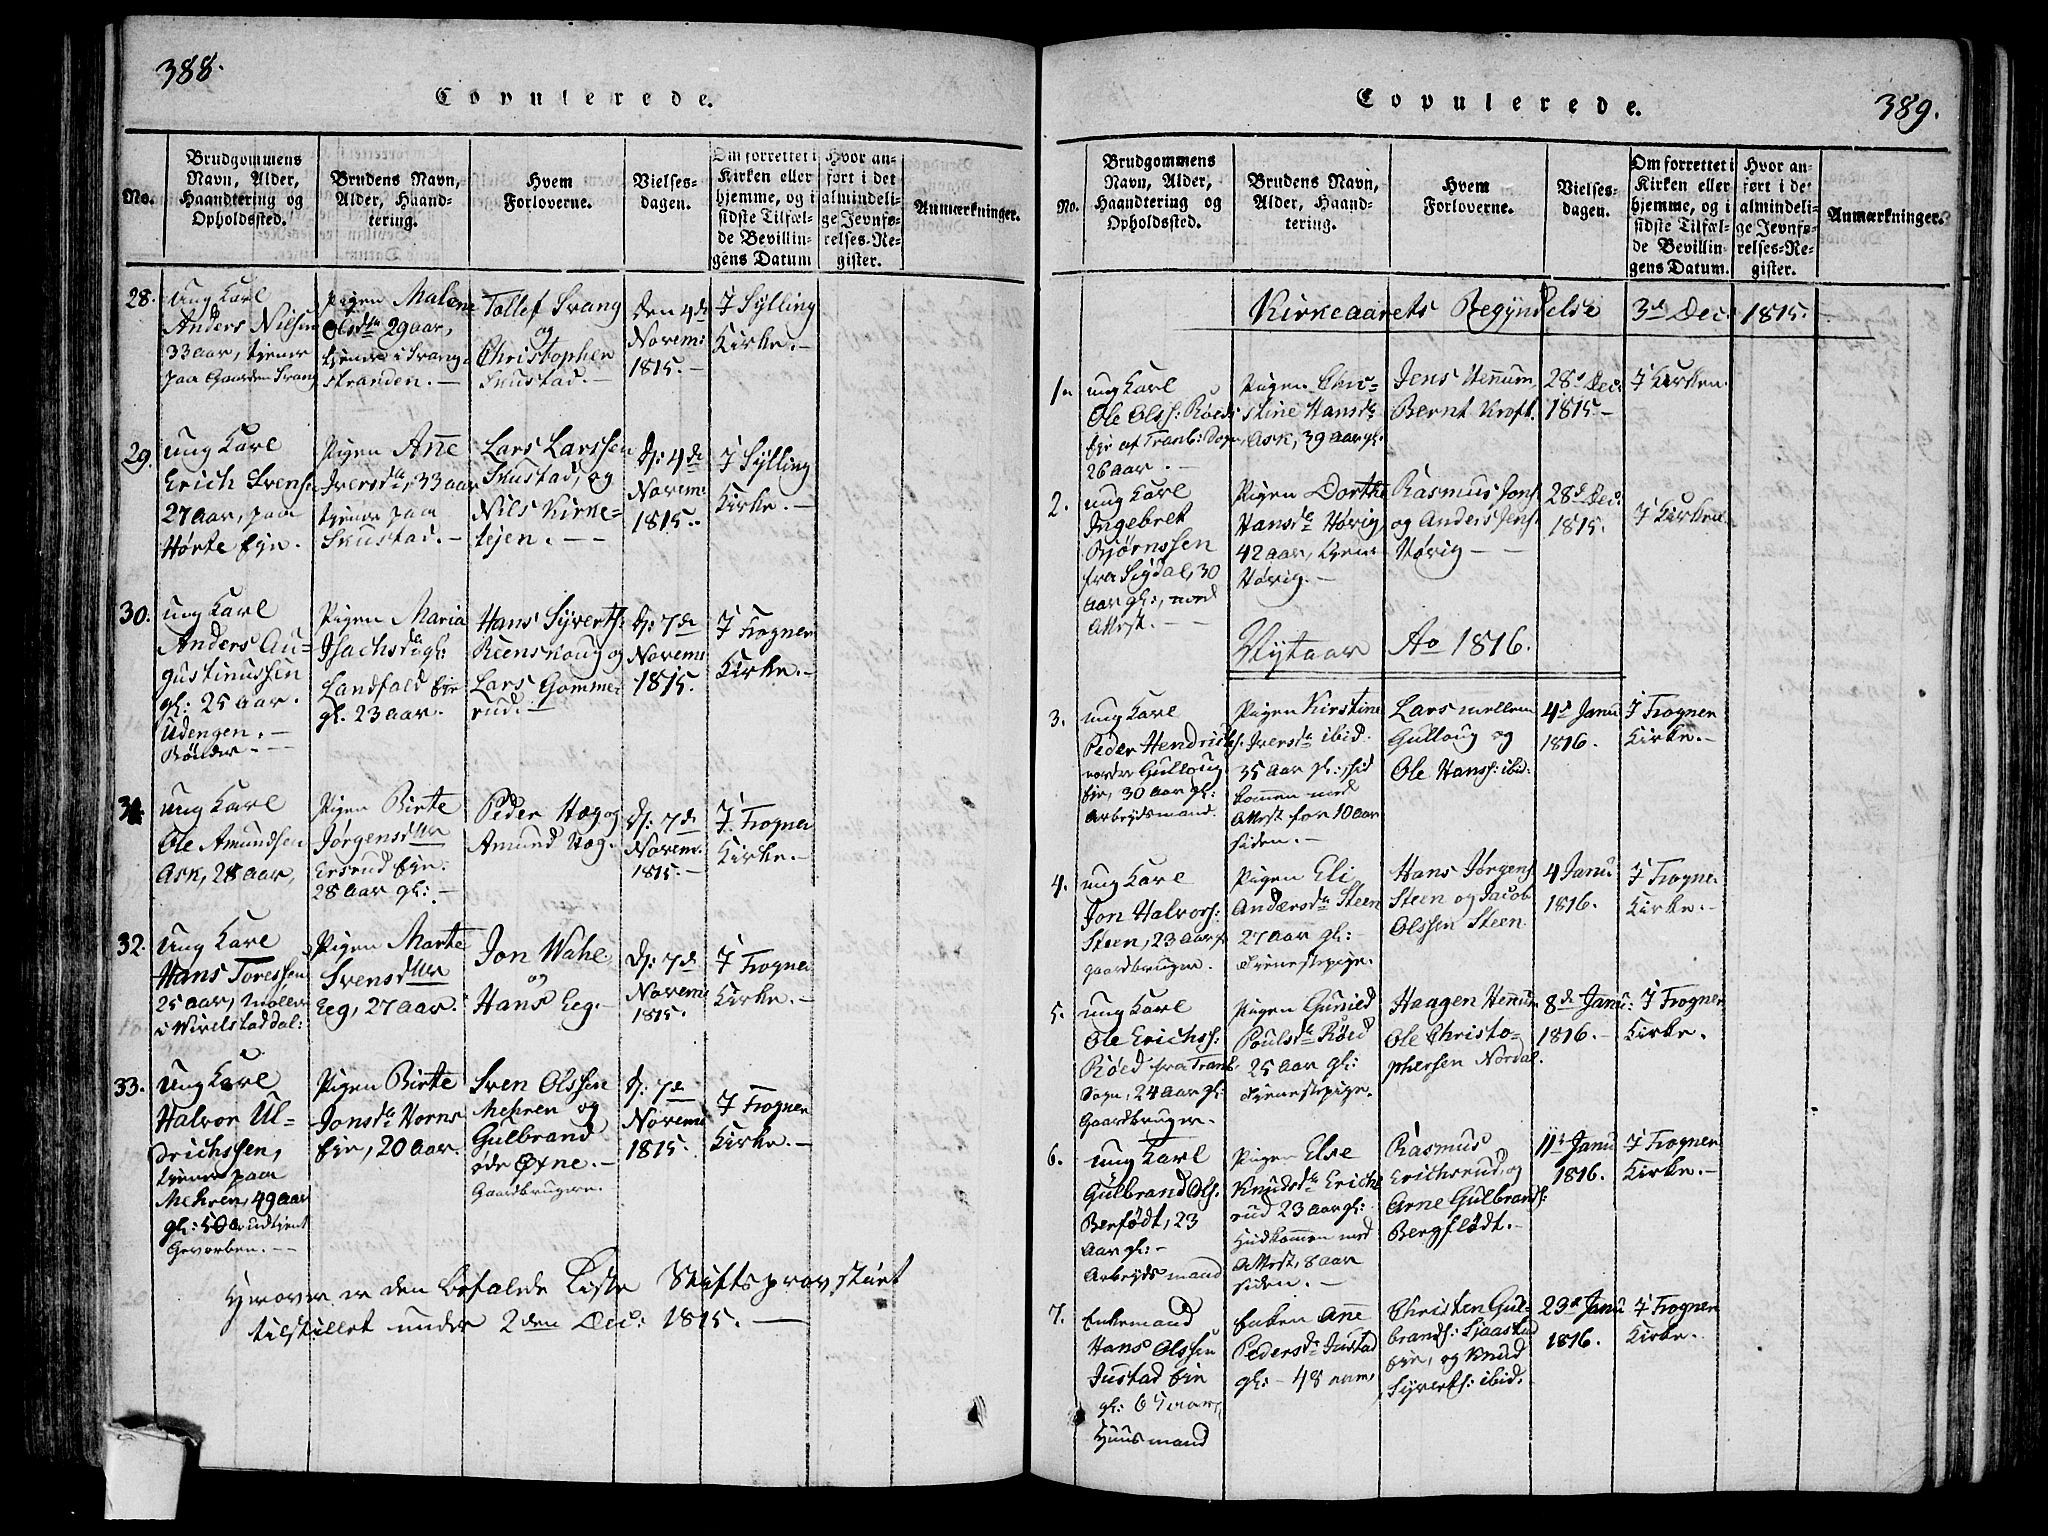 388.
Copulerede.
No.
Brudgommens
Navn, Alder,
Haandtering og
Opholdssted.
Brudens Navn,
Alder, Haand-
tering.
Hvem
Forloverne.
Vielses-
dagen.
Om forrettet i
Kirken eller
hjemme, og i
sidste Tilfæl-
de Bevillin-
gens Datum
Hvor an-
ført i det
almindeli-
ge Jevnfø-
relses-Re-
gister.
Anmærkninger.
28.
ung Karl
Anders Nilsen
33 aar, tjener
paa Gaarden Svang
Pigen Malene
Olsdtr 29 aar,
tjener i Svang-
stranden. –
Tollef Svang
og
Christopher
Skustad. –
den 4de
Novem:
1815. –
I Sylling
Kirke. –
29.
ung Karl
Erich Svens:
27 aar, paa
Hørte Eje.
Pigen Ane
Iversdtr, 33 aar
tjener paa
Skustad. –
Lars Larssen
Skustad, og
Nils Kirke-
lejen. – –
D: 4de
Novem:
1815.
I Sylling
Kirke. –
30.
ung Karl
Anders Au-
gustinussen
gl: 25 aar.
Udengen. –
Pigen Maria
Isachsd gl:
Landfald Eje
gl. 23 aar.
Hans Syverts:
Reenskoug og
Lars Gomme-
rud. –
D: 7de
Novem:
1815.
I Frogner
Kirke. –
31
ung Karl
Ole Amundsen
Ask, 28 aar,
Pigen Birte
Jørgensdttr
Ersrud Eje.
28 aar gl: –
Peder Hæg og
Amund Hæg.
D: 7de
Novem:
1815. –
I Frogner
Kirke. –
32.
ung Karl
Hans Toressen
25 aar, Møller
i Wivelstaddal:
Pigen Marte
Svensdttr
Eeg, 27 aar.
Jon Wahe
og
Hans Eeg. –
D: 7de
Novem:
1815.
I Frogner
Kirke. –
33.
ung Karl
Halvor Ul-
drichssen,
tjener paa
Mehren, 49 aar
gl: udtjent
Gevorben. –
Pigen Birte
Jonsdtr Horns
Eje, 20 aar.
Sven Olssen
Mehren og
Gulbrand
øde Øxne. –
Gaardbrugere.
D: 7de
Novem:
1815.
I Frogner
Kirke. –
Herover er den befalede Liste Stiftsprovstiet
tilstillet under 2den Dec: 1815. –
389.
Copulerede.
No.
Brudgommens
Navn, Alder,
Haandtering og
Opholdssted.
Brudens Navn,
Alder, Haand-
tering.
Hvem
Forloverne.
Vielses-
dagen.
Om forrettet i
Kirken eller
hjemme, og i
sidste Tilfæl-
de Bevillin-
gens Datum.
Hvor an-
ført i det
almindeli-
ge Jevnfø-
relses-Re-
gister.
Anmærkninger.
Kirkeaarets Begyndelse 3d Dec: 1815.
1.
ung Karl
Ole Olss: Røeds
Eje af Tranb: Sogn
26 aar. –
Pigen Chri-
stine Hansdtr
Ask, 39 aar gl.
Jens Henum
Bernt Kroft.
28d Dec:
1815 –
I Kirken
2.
ung Karl
Ingebret
Bjørnssen
fra Sigdal, 30
aar gl:, med
Attest. –
Pigen Dorthe
Hansdtr Hørig
42 aar, tjener
Hørig. –
Rasmus Jons:
og Anders Jens:
Hørig –
28d Dec:
1815.
I Kirken
Nytaar Ao 1816.
3.
ung Karl
Peder Hendrichs:
nordre Gulloug
Eje, 30 aar gl:
Arbejdsmand.
Pigen Kirstine
Iversdtr ibid.
35 aar gl:, hid
kommen med
Attest for 10 aar
siden. –
Lars mellem
Gulloug og
Ole Hanss: ibid:
4d Janu:
1816.
I Frogner
Kirke. –
4.
ung Karl
Jon Halvors:
Steen, 23 aar gl:
gaardbruger.
Pigen Eli
Andersdtr Steen
27 aar gl: –
Tjenestepige.
Hans Jørgens:
Steen og Jacob
Olssen Steen.
4 Janu:
1816.
I Frogner
Kirke. –
5.
ung Karl
Ole Erichss:
Røed fra Tranb:
Sogn, 24 aar gl:
Gaardbruger.
Pigen Gunild
Poulsdtr Røed
25 aar gl:
Tjenestepige.
Haagen Henum
Ole Christo-
phersen Nordal.
8de Janu:
1816. –
I Frogner
Kirke. –
6.
ung Karl
Gulbrand Ols:
Berfødt, 23
aar gl: –
Arbejdsmand
Pigen Else
Knudsdtr Erichs
rud 23 aar gl:
Hidkommen med
Attest, 8 aar
siden. –
Rasmus
Erichsrud, og
Arne Gulbrands:
Bergflødt. –
11t Janu
1816.
I Frogner
Kirke. –
7.
Enkemand
Hans Olssen
Justad Eje
gl: 65 aar,
Huusmand
Enken Ane
Pedersdtr Justad
gl: – 48 aar,
Christen Gul-
brands: Sjaastad
Eje, og Knud
Syverts: ibid.
23d Janu
1816.
I Frogner
Kirke.